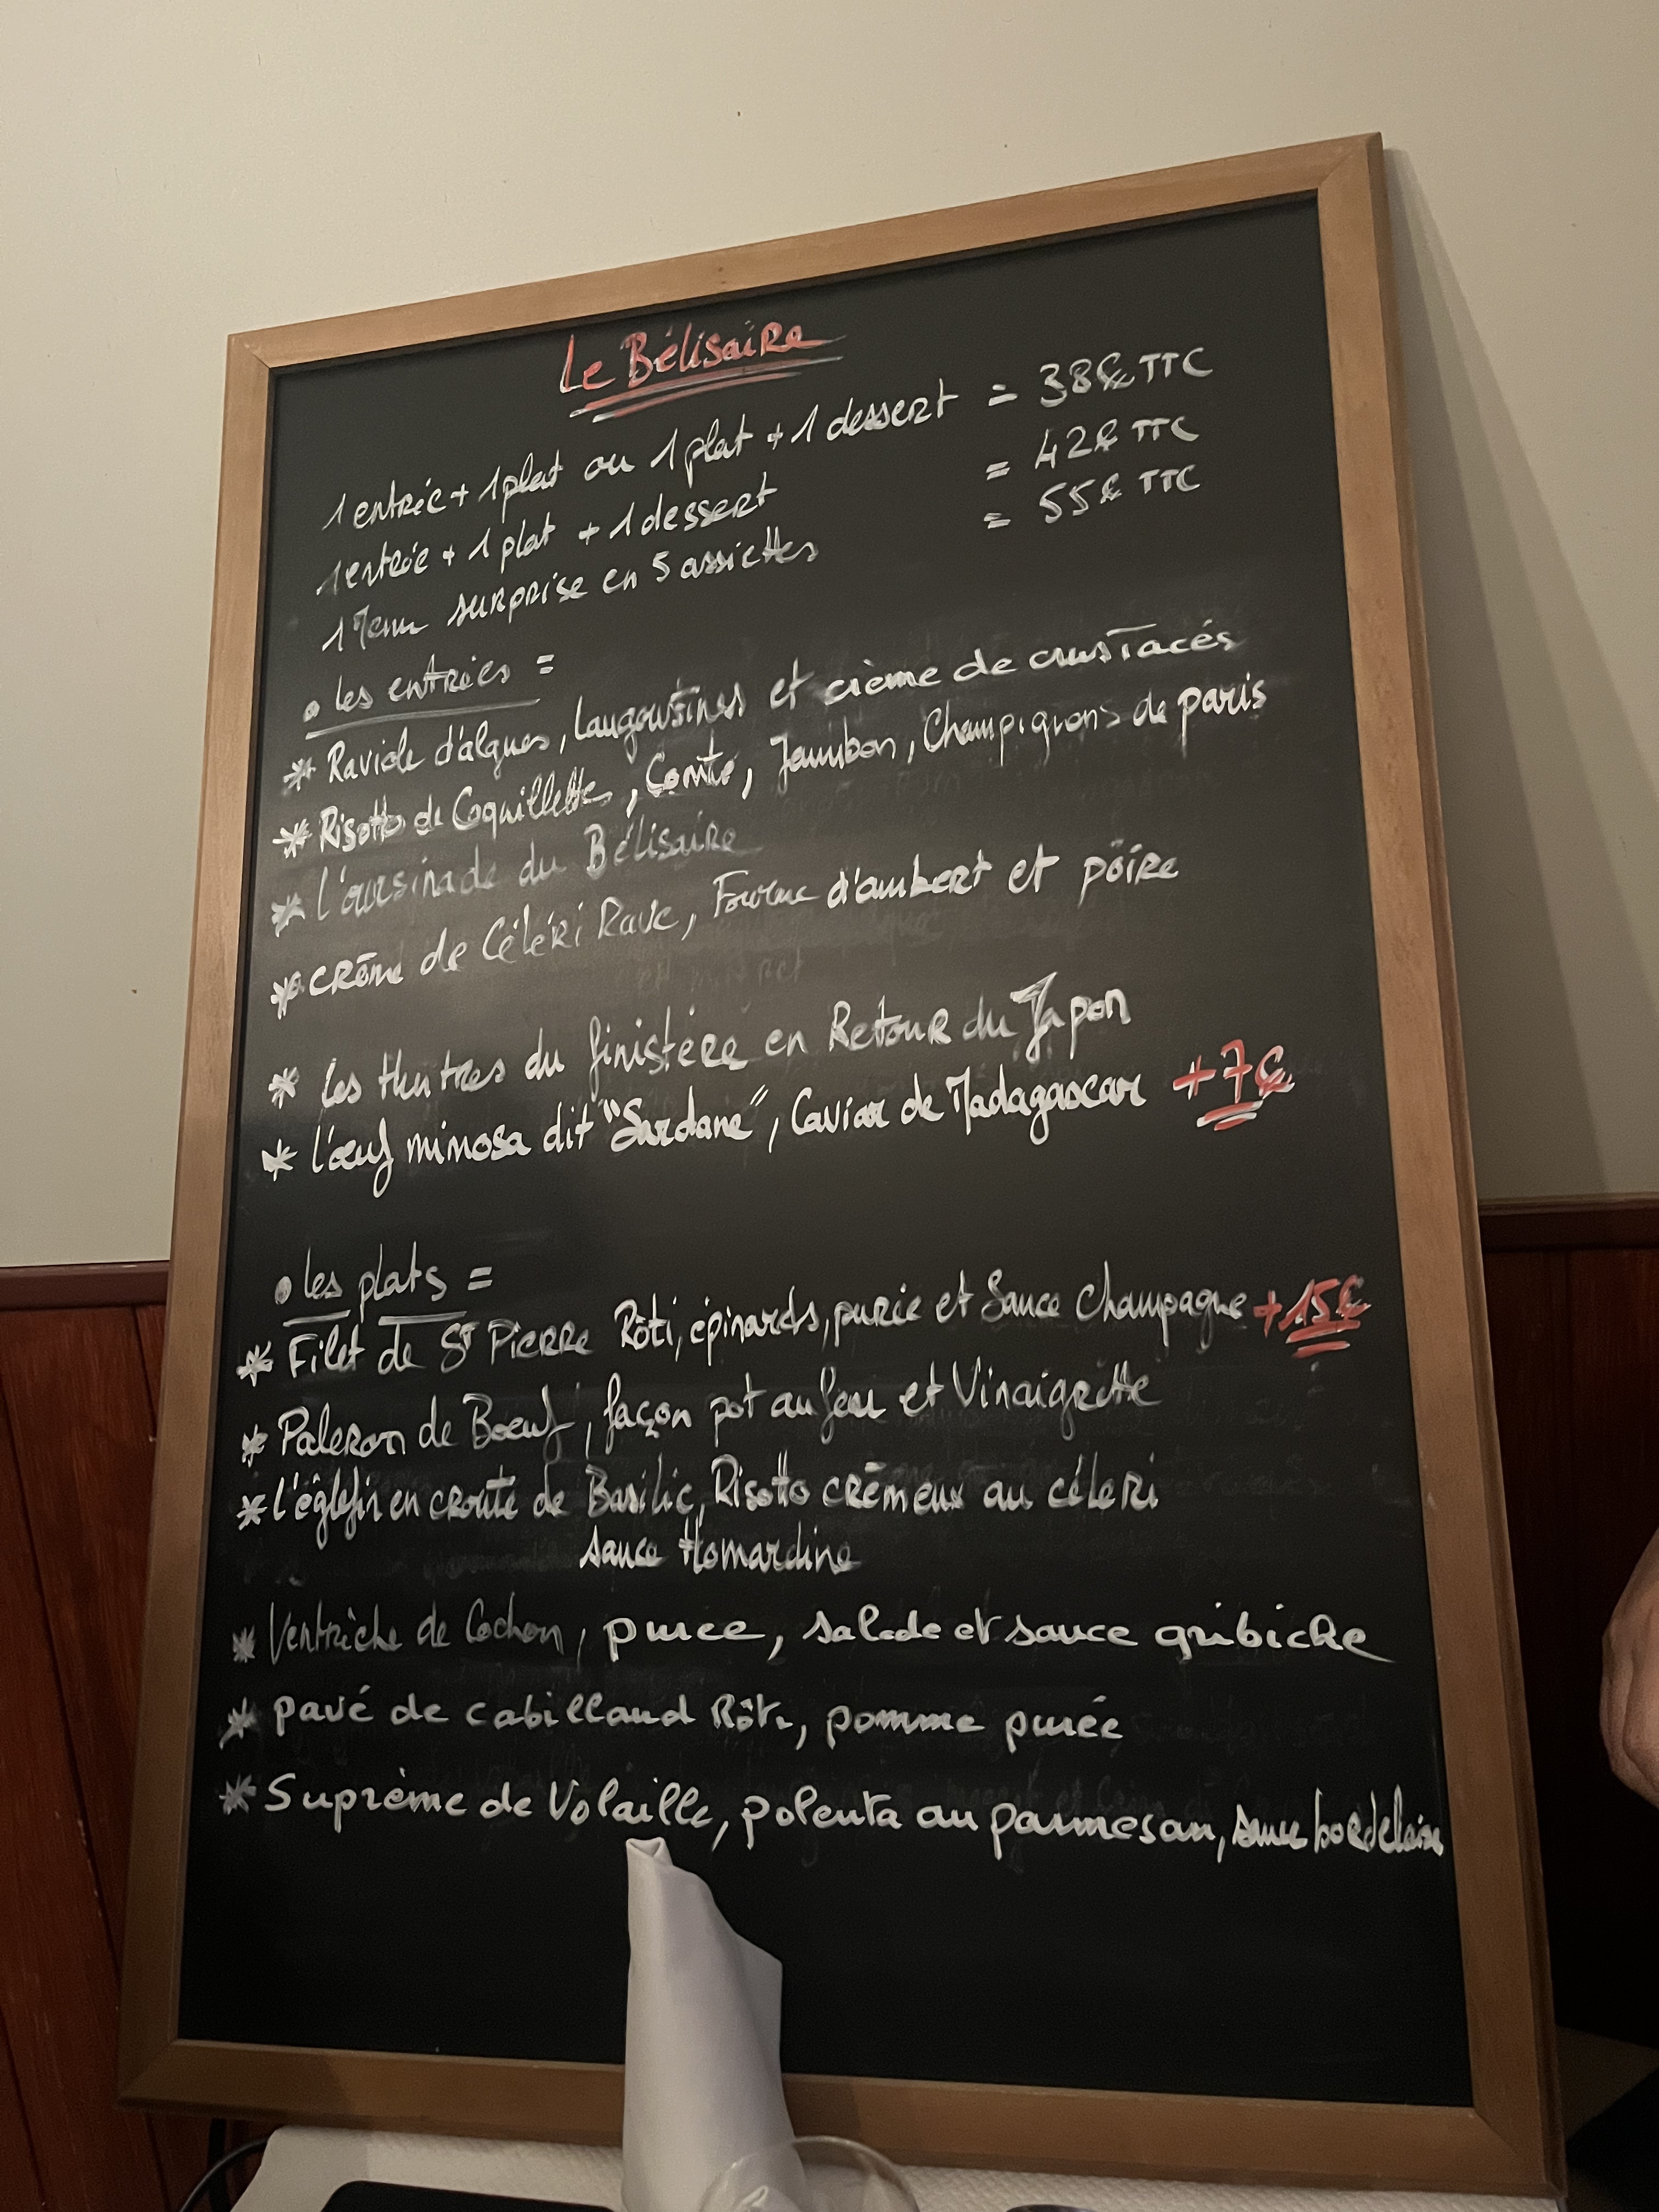 Le Bélisaire
1 entrée + 1 plat ou 1 plat + 1 dessert = 38€ TTC
1 entrée + 1 plat + 1 dessert = 42€ TTC
1 Menu surprise en 5 assiettes = 55€ TTC
• les entrées =
* Raviole d'algues, Langoustines et crème de crustacés
* Risotto de Coquillettes, Comté, Jambon, Champignons de paris
* l'oursinade du Bélisaire
* crème de Céléri Rave, Fourme d'ambert et poire
* Les Huitres du finistère en Retour du Japon
* l'œuf mimosa dit "Sardane", Caviar de Madagascar +7€
• les plats =
* Filet de St Pierre Rôti, épinards, purée et Sauce Champagne +15€
* Paleron de Boeuf, façon pot au feu et Vinaigrette
* l'églefin en croute de Basilic, Risotto crémeux au céleri
sauce Homardine
* Ventrèche de Cochon, puree, salade et sauce gribiche
* pavé de cabillaud Rôti, pomme purée
* Suprème de Volaille, polenta au parmesan, sauce bordelaise